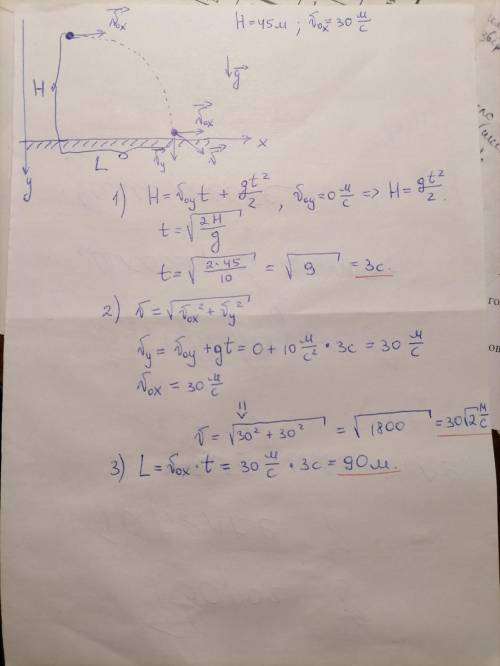 H = 45 м ; v₀ₓ = 30 м/с
v₀ₓ
H
g
v₀ₓ
x
L
0
vᵧ
v
y
1) H = v₀ᵧ t + gt²/2 , v₀ᵧ = 0 м/с => H = gt²/2.
t = √(2H/g)
t = √(2·45/10) = √9 = 3с.
2) v = √(v₀ₓ² + vᵧ²)
vᵧ = v₀ᵧ + gt = 0 + 10 м/с² · 3с = 30 м/с
v₀ₓ = 30 м/с
⇓
v = √(30² + 30²) = √1800 = 30√2 м/с
3) L = v₀ₓ · t = 30 м/с · 3с = 90м.
го
ов